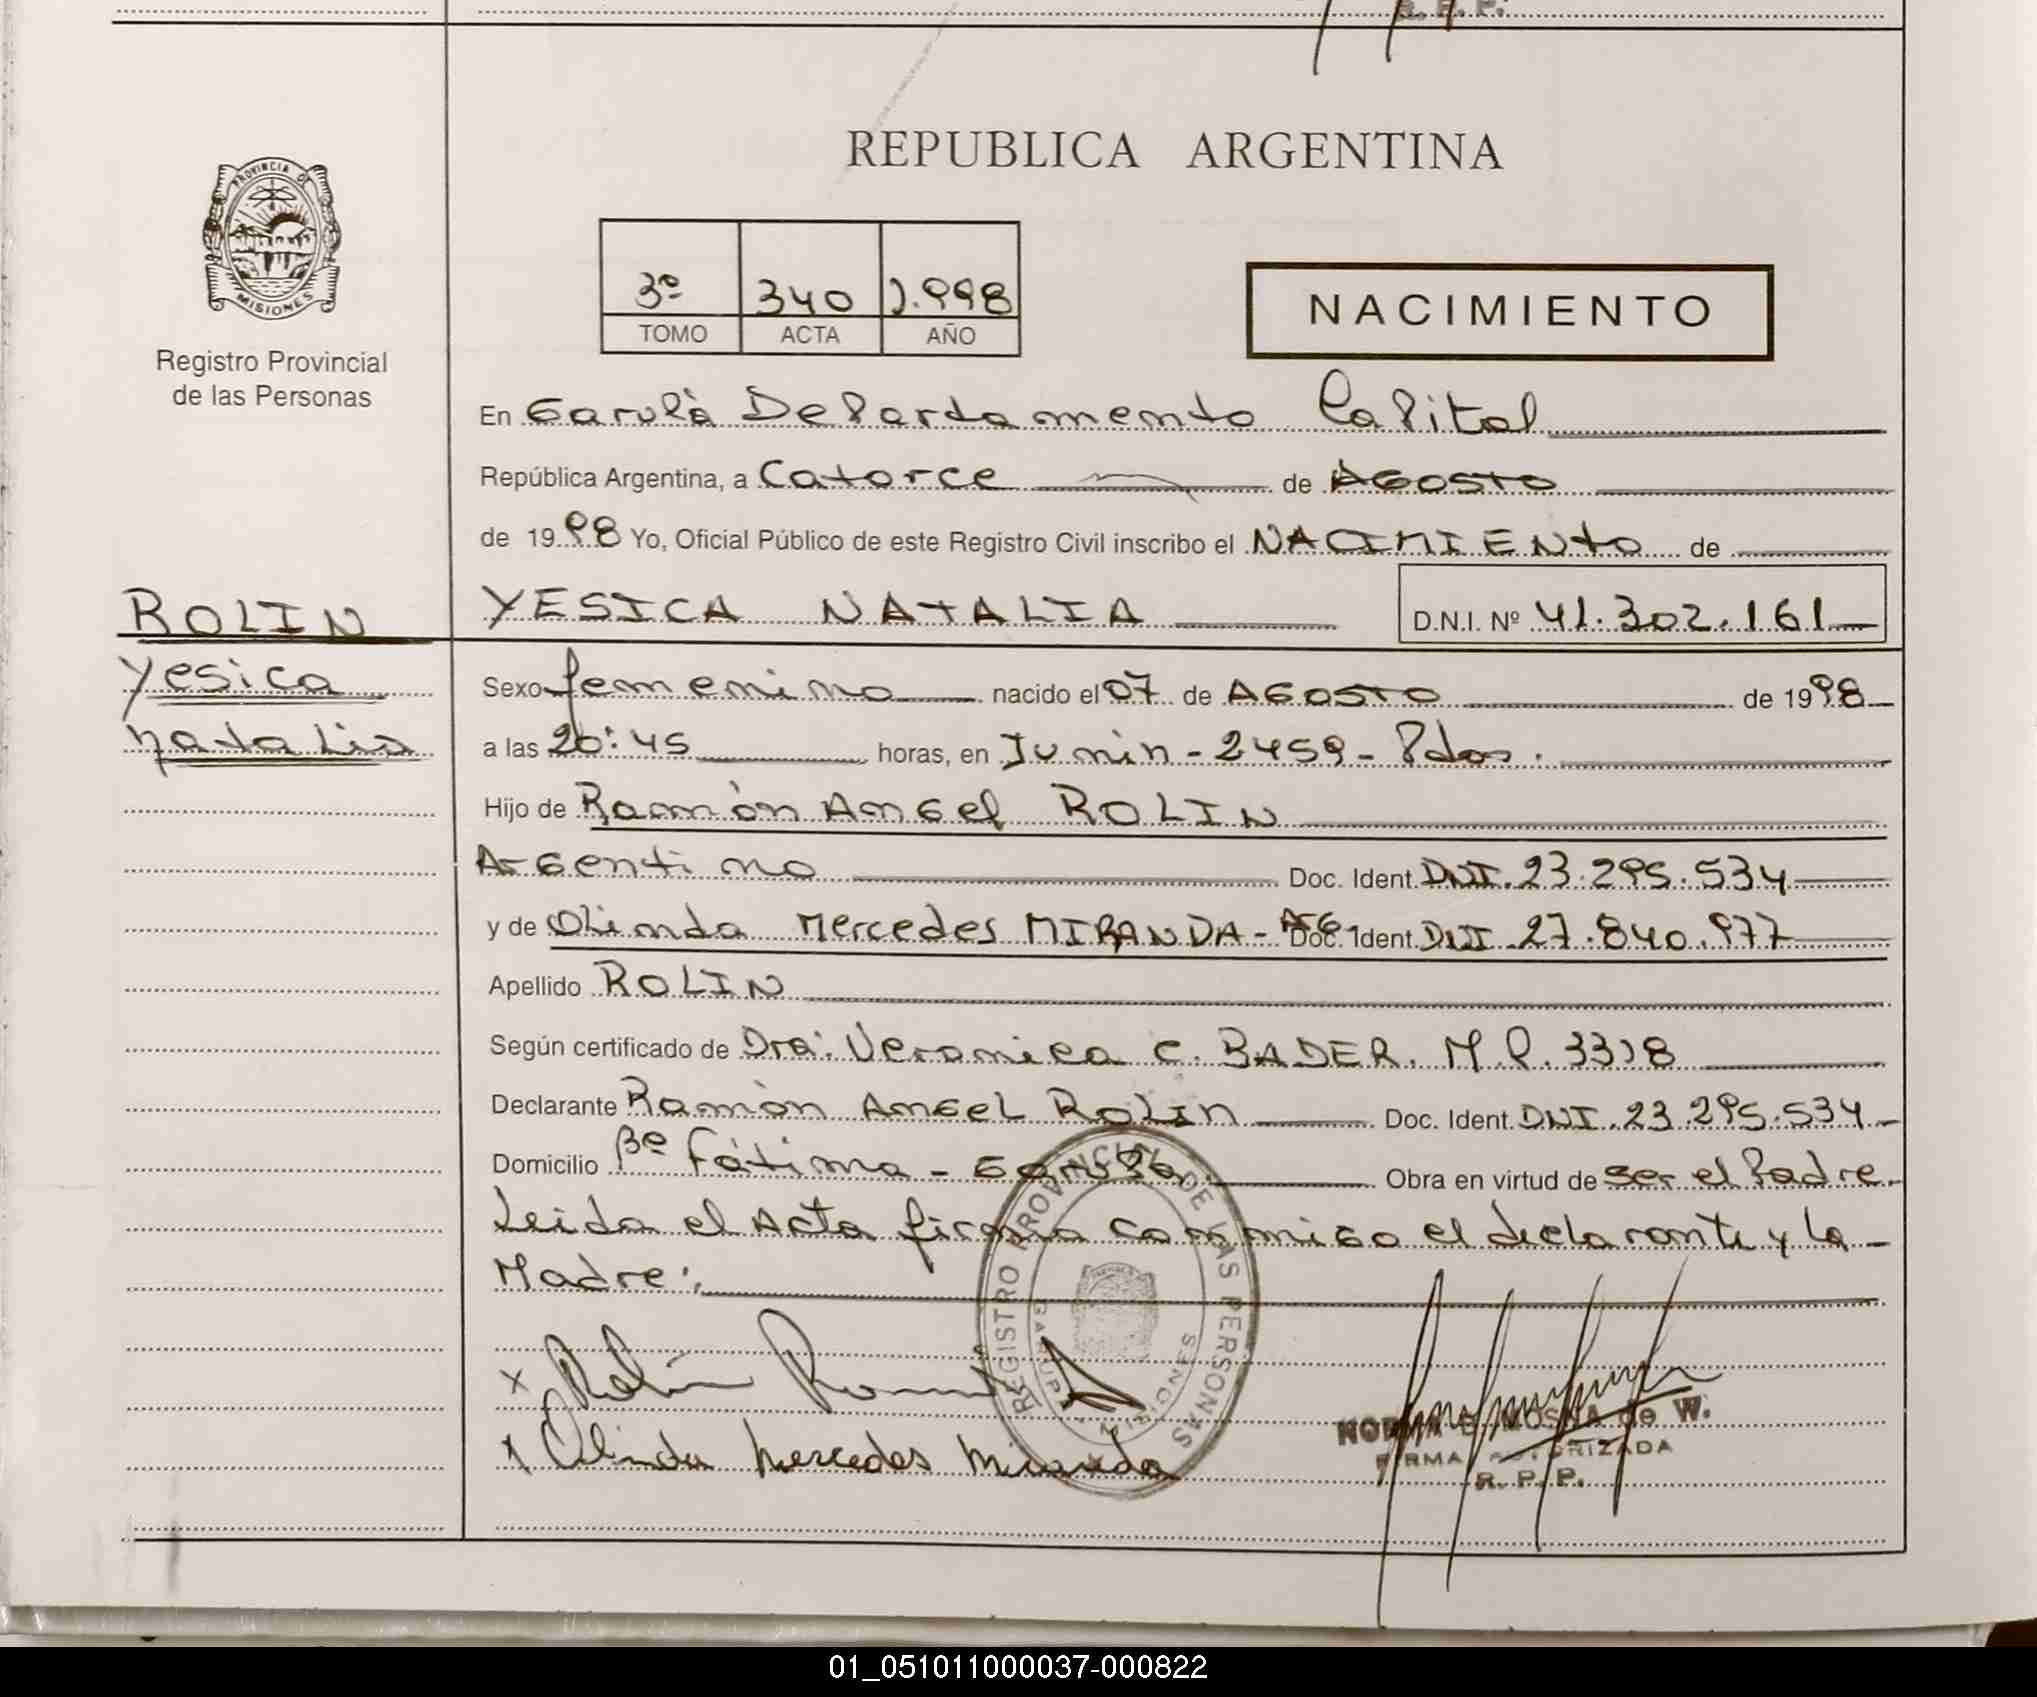 R. P. P.
REPUBLICA ARGENTINA
PROVINCIA DE
MISIONES
Registro Provincial
de las Personas
3º 340 1.998
TOMO ACTA AÑO
NACIMIENTO
En Garupà Departamento Capital
República Argentina, a Catorce de AGOSTO
de 1998 Yo, Oficial Público de este Registro Civil inscribo el NACIMIENto de
ROLIN
YESICA NATALIA D.N.I. Nº 41.302.161
Yesica
Natalia
Sexo femenino nacido el 07 de AGOSTO de 1998
a las 20:45 horas, en Junin - 2459 - Pdas.
Hijo de Ramòn Angel ROLIN
Argentino Doc. Ident. DNI. 23.295.534
y de Olinda Mercedes MIRANDA - Arg. Doc. Ident. DNI 27.840.977
Apellido ROLIN
Según certificado de Dra. Veronica C. BADER. M.P. 3318
Declarante Ramòn Angel Rolin Doc. Ident. DNI. 23.295.534
Domicilio Bº Fátima - Garupa. Obra en virtud de ser el Padre.
Leida el Acta firma conmigo el declarante y la
Madre:
REGISTRO PROVINCIAL DE LAS PERSONAS
GARUPA MISIONES
x Rolin Ramon A
x Olinda Mercedes Miranda
NORMA B. MOSNA de W.
FIRMA AUTORIZADA
R. P. P.
01_051011000037-000822